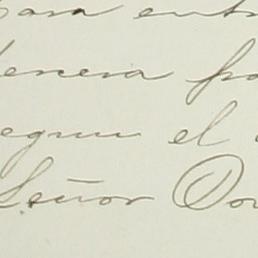 para entr
tenera fra
egun el
Señor Don